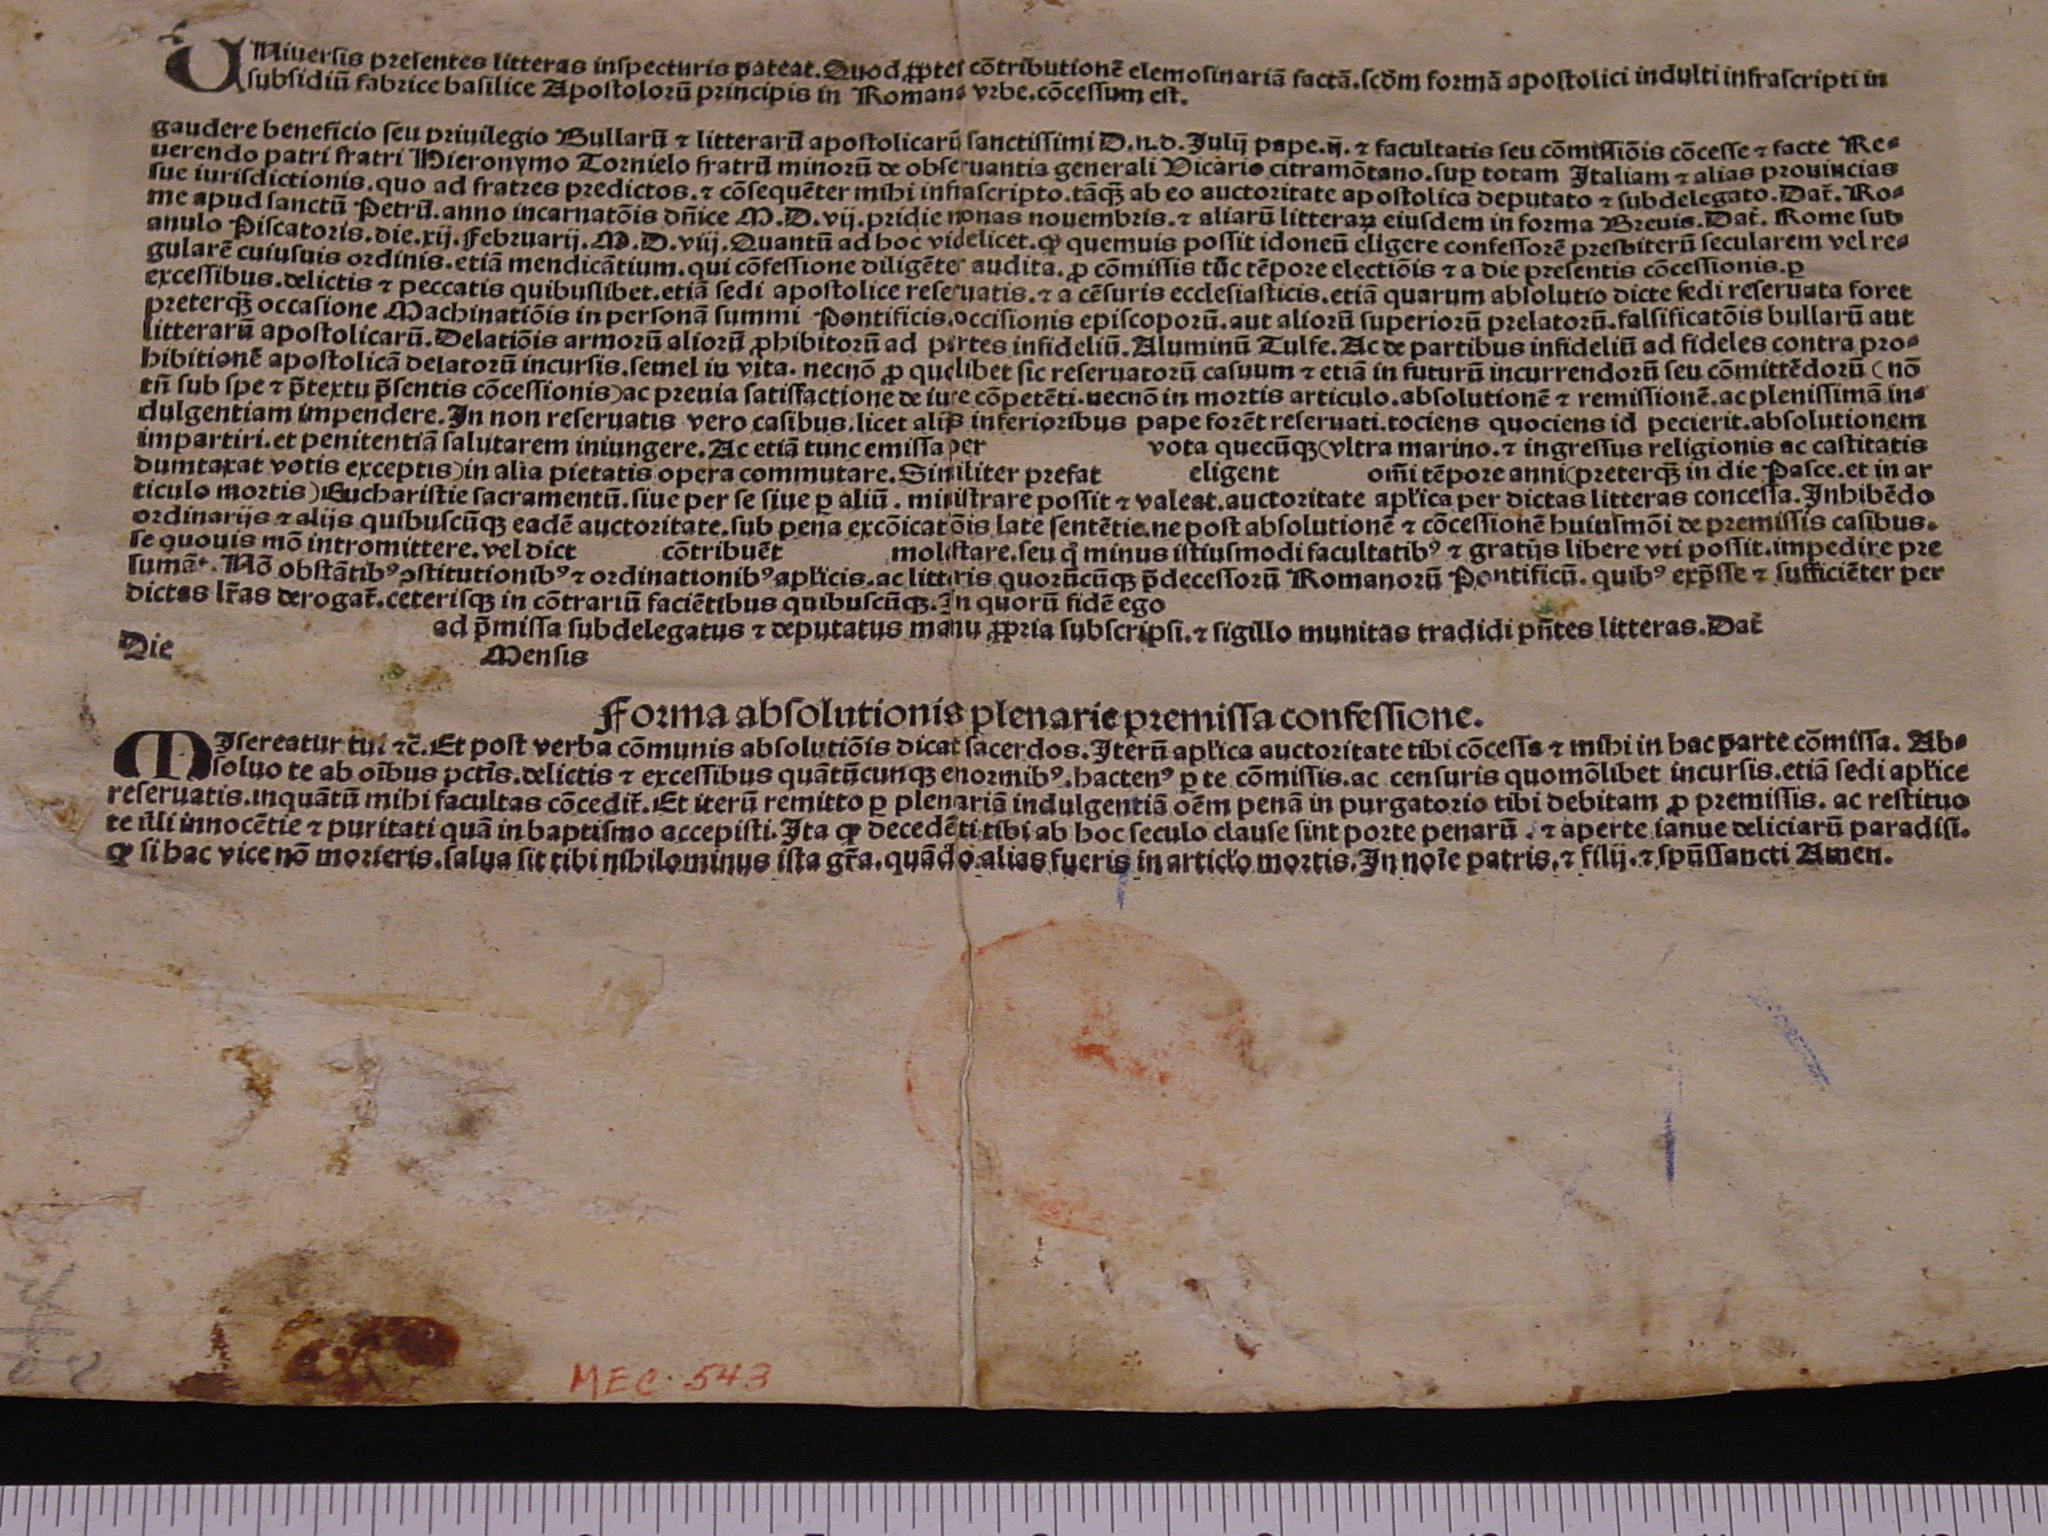 UNiuersis presentes litteras inspecturis pateat. Quod ꝓptei cōtributionē elemosinariā factā. scd̄m formā apostolici indulti infrascripti in
subsidiū fabrice basilice Apostolorū principis in Romana vrbe. cōcessum est.
gaudere beneficio seu priuilegio Bullarū ⁊ litterarū apostolicarū sanctissimi D.n.d. Julij pape.ij. ⁊ facultatis seu cōmissiōis cōcesse ⁊ facte Re⸗
uerendo patri fratri Hieronymo Tornielo fratrū minorū de obseruantia generali Vicario citramōtano. suꝑ totam Italiam ⁊ alias prouincias
sue iurisdictionis. quo ad fratres predictos. ⁊ cōsequēter mihi infrascripto. tāqꝫ ab eo auctoritate apostolica deputato ⁊ subdelegato. Dat̄. Ro⸗
me apud sanctū Petrū. anno incarnatōis dn̄ice M.D.vij. pridie nonas nouembris. ⁊ aliarū litteraꝝ eiusdem in forma Breuis. Dat̄. Rome sub
anulo Piscatoris. die. xij. Februarij. M.D.viij. Quantū ad hoc videlicet. ꝙ quemuis possit idoneū eligere confessorē presbiterū secularem vel re⸗
gularē cuiusuis ordinis. etiā mendicātium. qui cōfessione diligēter audita. ꝓ cōmissis tūc tēpore electiōis ⁊ a die presentis cōcessionis. ꝑ
excessibus. delictis ⁊ peccatis quibuslibet. etiā sedi apostolice reseruatis. ⁊ a cēsuris ecclesiasticis. etiā quarum absolutio dicte sedi reseruata foret
preterqꝫ occasione Machinatiōis in personā summi Pontificis. occisionis episcoporū. aut aliorū superiorū prelatorū. falsificatōis bullarū aut
litterarū apostolicarū. Delatiōis armorū aliorū ꝓhibitorū ad partes infideliū. Aluminū Tulfe. Ac de partibus infideliū ad fideles contra pro⸗
hibitionē apostolicā delatorū incursis. semel in vita. necnō ꝓ quolibet sic reseruatorū casuum ⁊ etiā in futurū incurrendorū seu cōmittēdorū (nō
tn̄ sub spe ⁊ p̄textu p̄sentis cōcessionis) ac preuia satisfactione de iure cōpetēti. necnō in mortis articulo. absolutionē ⁊ remissionē. ac plenissimā in⸗
dulgentiam impendere. In non reseruatis vero casibus. licet alijs inferioribus pape forēt reseruati. tociens quociens id pecierit. absolutionem
impartiri. et penitentiā salutarem iniungere. Ac etiā tunc emissa per vota quecūqꝫ (vltra marino. ⁊ ingressus religionis ac castitatis
dumtaxat votis exceptis) in alia pietatis opera commutare. Similiter prefat eligent om̄i tēpore anni (preterqꝫ in die Pasce. et in ar
ticulo mortis) Eucharistie sacramentū. siue per se siue ꝑ aliū. ministrare possit ⁊ valeat. auctoritate apl̄ica per dictas litteras concessa. Inhibēdo
ordinarijs ⁊ alijs quibuscūqꝫ eadē auctoritate. sub pena excōicatōis late sentētie. ne post absolutionē ⁊ cōcessionē huiusmōi de premissis casibus.
se quouis mō intromittere. vel dict cōtribuēt molestare. seu q̄ minus istiusmodi facultatibꝰ ⁊ gratijs libere vti possit. impedire pre
sumāt. Nō obstātibꝰ ↄstitutionibꝰ ⁊ ordinationibꝰ apl̄icis. ac litteris quorūcūqꝫ p̄decessorū Romanorū Pontificū. quibꝰ exp̄sse ⁊ sufficiēter per
dictas lr̄as derogat̄. ceterisqꝫ in cōtrariū faciētibus quibuscūqꝫ. In quorū fidē ego
ad p̄missa subdelegatus ⁊ deputatus manu ꝓpria subscripsi. ⁊ sigillo munitas tradidi pn̄tes litteras. Dat̄
Die Mensis
Forma absolutionis plenarie premissa confessione.
MIsereatur tui ⁊c̄. Et post verba cōmunis absolutiōis dicat sacerdos. Iterū apl̄ica auctoritate tibi cōcessa ⁊ mihi in hac parte cōmissa. Ab⸗
soluo te ab oībus pctīs. delictis ⁊ excessibus quātūcunqꝫ enormibꝰ. hactenꝰ ꝑ te cōmissis. ac censuris quomōlibet incursis. etiā sedi apl̄ice
reseruatis. inquātū mihi facultas cōcedit̄. Et iterū remitto ꝑ plenariā indulgentiā oēm penā in purgatorio tibi debitam ꝓ premissis. ac restituo
te illi innocētie ⁊ puritati quā in baptismo accepisti. Ita ꝙ decedēti tibi ab hoc seculo clause sint porte penarū. ⁊ aperte ianue deliciarū paradisi.
ꝙ si hac vice nō morieris. salua sit tibi nihilominus ista gr̄a. quādo alias fueris in articl̄o mortis. In noīe patris. ⁊ filij. ⁊ spūssancti Amen.
MEC. 543